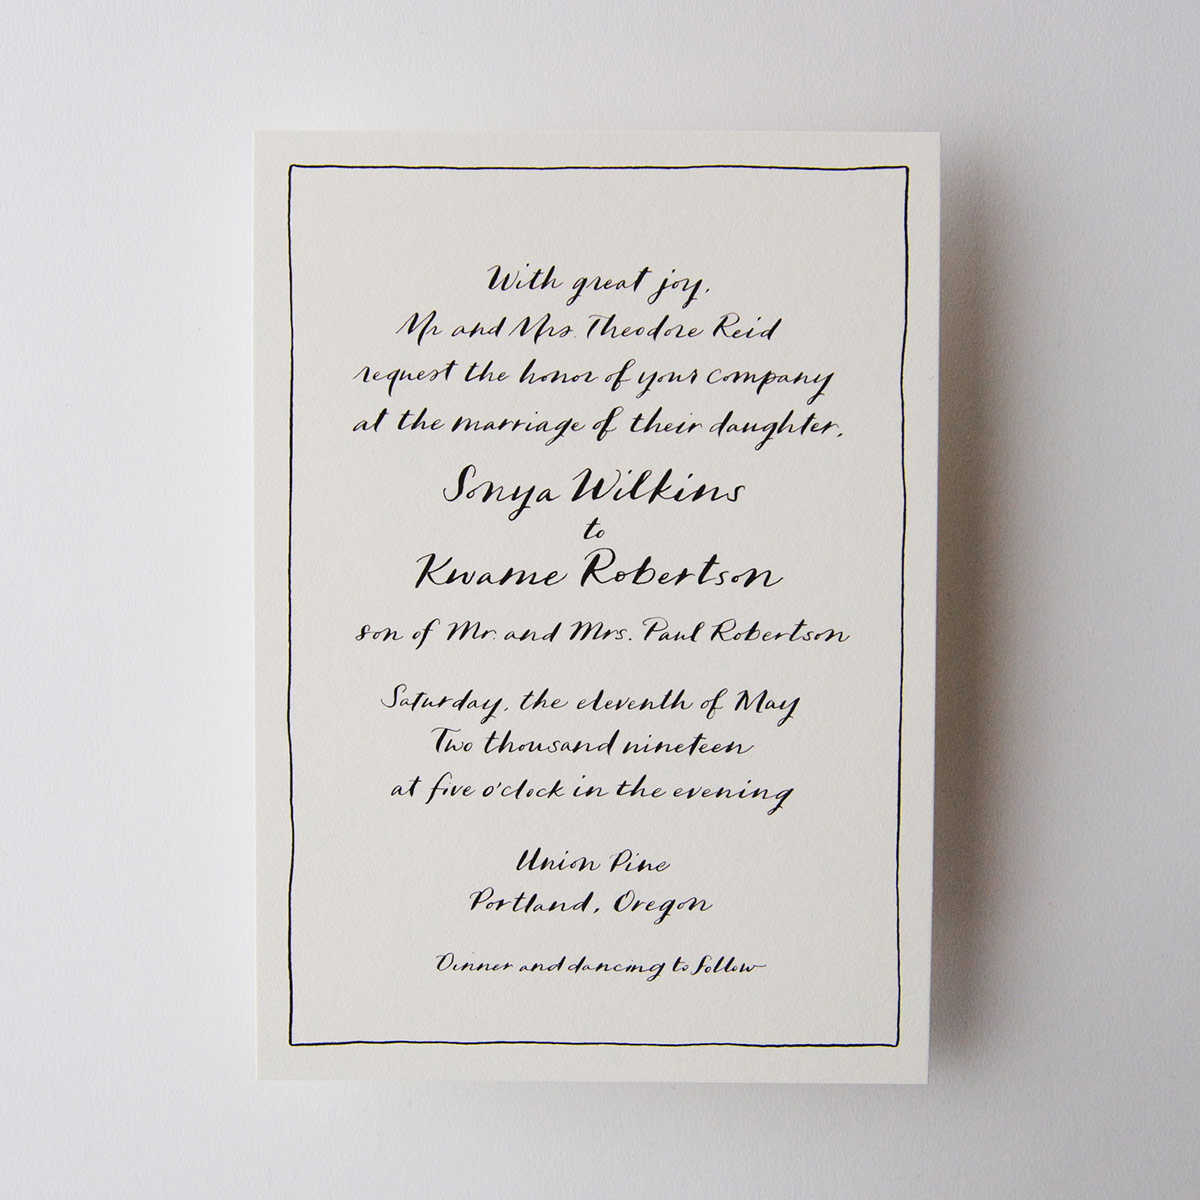 With great joy,
Mr. and Mrs. Theodore Reid
request the honor of your company
at the marriage of their daughter,
Sonya Wilkins
to
Kwame Robertson
son of Mr. and Mrs. Paul Robertson
Saturday, the eleventh of May
Two thousand nineteen
at five o'clock in the evening
Union Pine
Portland, Oregon
Dinner and dancing to follow